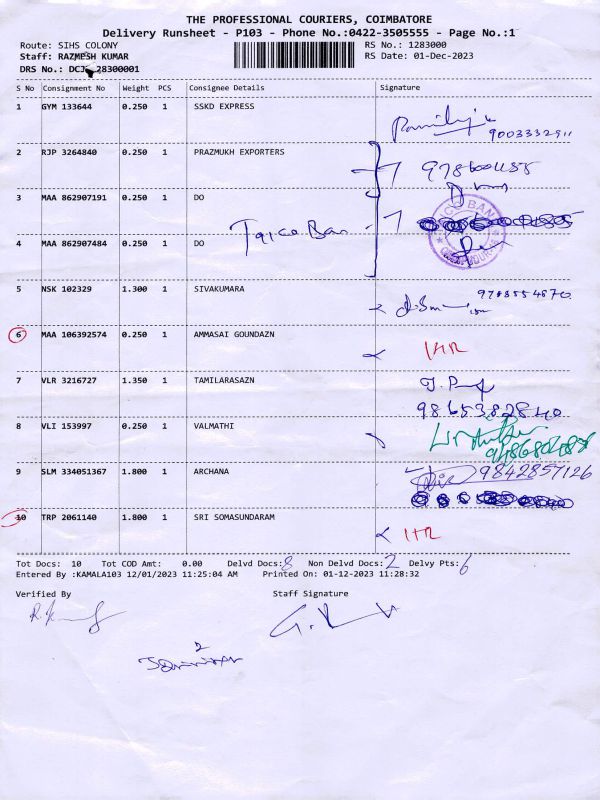 THE PROFESSIONAL COURIERS, COIMBATORE
Delivery Runsheet - P103 - Phone No.:0422-3505555 - Page No.:1
Route: SIHS COLONY
RS No.: 1283000
Staff: RAZMESH KUMAR
RS Date: 01-Dec-2023
DRS No.: DCJ 28300001
S No Consignment No Weight PCS Consignee Details Signature
1 GYM 133644 0.250 1 SSKD EXPRESS
9003332911
2 RJP 3264840 0.250 1 PRAZMUKH EXPORTERS
3 MAA 862907191 0.250 1 DO
4 MAA 862907484 0.250 1 DO
5 NSK 102329 1.300 1 SIVAKUMARA
6 MAA 106392574 0.250 1 AMMASAI GOUNDAZN
7 VLR 3216727 1.350 1 TAMILARASAZN
9865382840
8 VLI 153997 0.250 1 VALMATHI
9 SLM 334051367 1.800 1 ARCHANA 9842857126
10 TRP 2061140 1.800 1 SRI SOMASUNDARAM
Tot Docs: 10 Tot COD Amt: 0.00 Delvd Docs: 8 Non Delvd Docs: 2 Delvy Pts: 6
Entered By :KAMALA103 12/01/2023 11:25:04 AM Printed On: 01-12-2023 11:28:32
Verified By Staff Signature